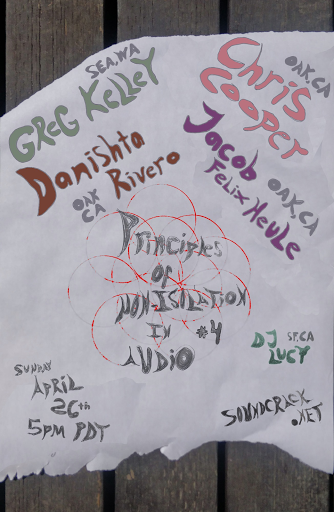 SEA,WA
GREG KELLEY
OAK,CA
Chris
Cooper
Danishta
Rivero
OAK
CA
Jacob
Felix OAK,CA
Heule
Principles
OF
NON-ISOLATION
IN #4
AUDIO
DJ SF,CA
LUCY
SUNDAY
APRIL
26th
5PM PDT
SOUNDCRACK
.NET